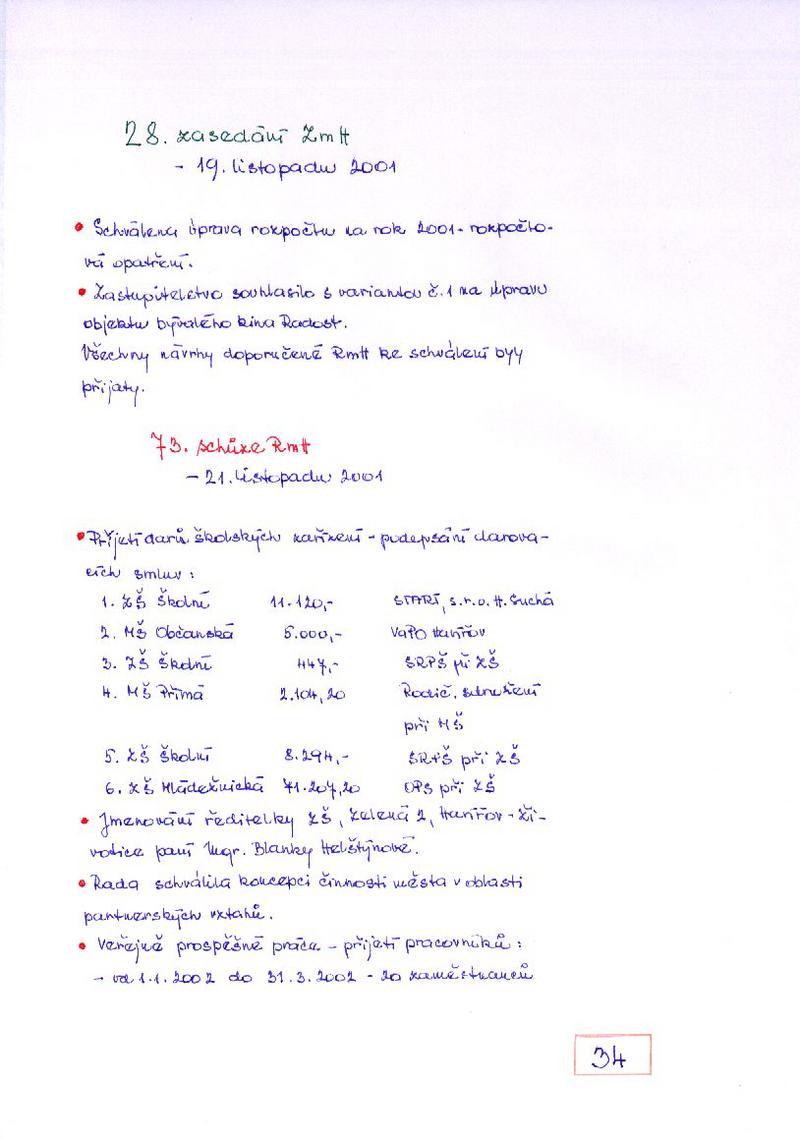 28. zasedání ZmH
- 19. listopadu 2001
• Schválena úprava rozpočtu na rok 2001 - rozpočto-
vá opatření.
• Zastupitelstvo souhlasilo s variantou č. 1 na úpravu
objektu bývalého kina Radost.
Všechny návrhy doporučené RmH ke schválení byy
přijaty.
73. schůze RmH
- 21. listopadu 2001
• Přijetí darů školských zařízení - podepsání darova-
cích smluv :
1. ZŠ Školní 11.120,- START, s.r.o. H. Suchá
2. MŠ Občanská 5.000,- VaPO Havířov
3. ZŠ Školní 447,- SRPŠ při ZŠ
4. MŠ Přímá 2.104,20 Rodič. sdružení
při MŠ
5. ZŠ Školní 8.294,- SRPŠ při ZŠ
6. ZŠ Mládežnická 71.207,20 OPS při ZŠ
• Jmenování ředitelky ZŠ, Zelená 2, Havířov - Ži-
votice paní Mgr. Blanky Helštýnové.
• Rada schválila koncepci činnosti města v oblasti
partnerských vztahů.
• Veřejně prospěšné práce - přijetí pracovníků :
- od 1.1.2002 do 31.3.2002 - 20 zaměstnanců
34